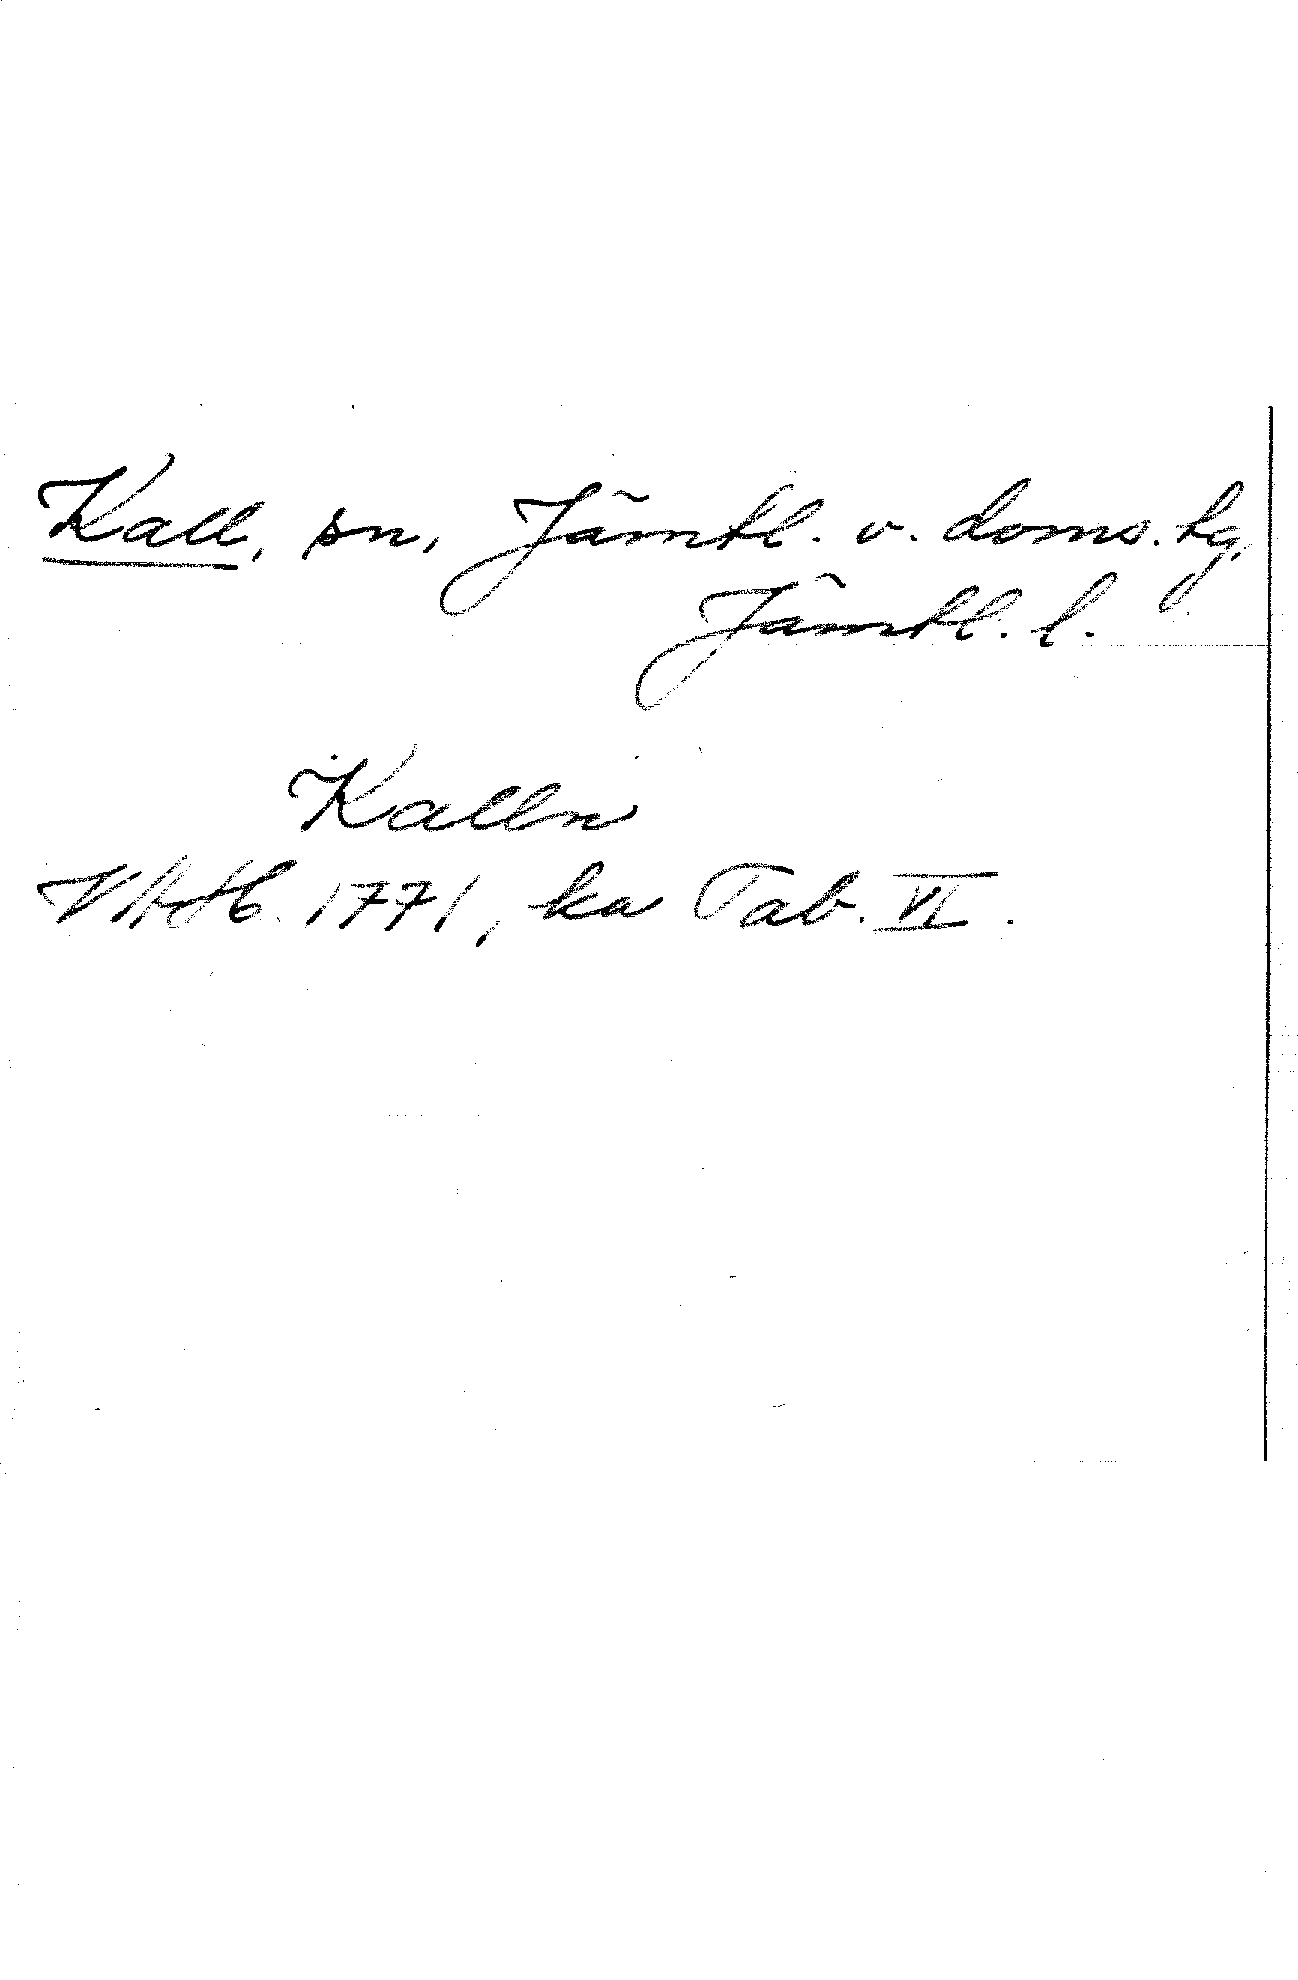 Kall, sn, Jämtl. v. doms. tg,
Jämtl. l.
Kalln
VAH 1771, ka Tab. VI.